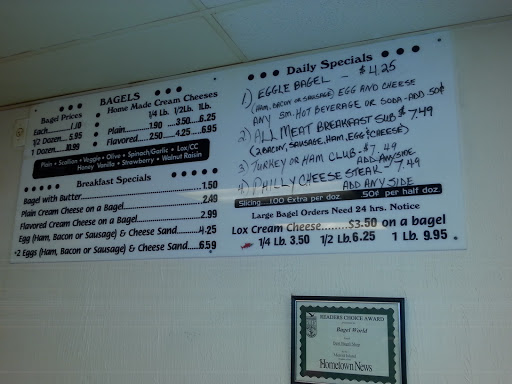 BAGELS
Bagel Prices
Each..........1.10
1/2 Dozen....5.95
1 Dozen....10.99
Home Made Cream Cheeses
1/4 Lb. 1/2Lb. 1Lb.
Plain..........1.90 3.50 6.25
Flavored....2.50 4.25 6.95
Plain • Scallion • Veggie • Olive • Spinach/Garlic • Lox/CC
Honey Vanilla • Strawberry • Walnut Raisin
Breakfast Specials
Bagel with Butter............1.50
Plain Cream Cheese on a Bagel............2.49
Flavored Cream Cheese on a Bagel............2.99
Egg (Ham, Bacon or Sausage) & Cheese Sand......4.25
2 Eggs (Ham, Bacon or Sausage) & Cheese Sand.....6.59
Daily Specials
1) EGGLE BAGEL - $4.25
(HAM, BACON OR SAUSAGE) EGG AND CHEESE
ANY SM. HOT BEVERAGE OR SODA - ADD 50¢
2) ALL MEAT BREAKFAST SUB $7.49
(BACON, SAUSAGE, HAM, EGG & CHEESE)
3) TURKEY OR HAM CLUB - $7.49
ADD ANY SIDE
4) PHILLY CHEESE STEAK 7.49
ADD ANY SIDE
Slicing...1.00 Extra per doz. 50¢ per half doz.
Large Bagel Orders Need 24 hrs. Notice
Lox Cream Cheese........$3.50 on a bagel
1/4 Lb. 3.50 1/2 Lb. 6.25 1 Lb. 9.95
READERS CHOICE AWARD
Bagel World
Hometown News